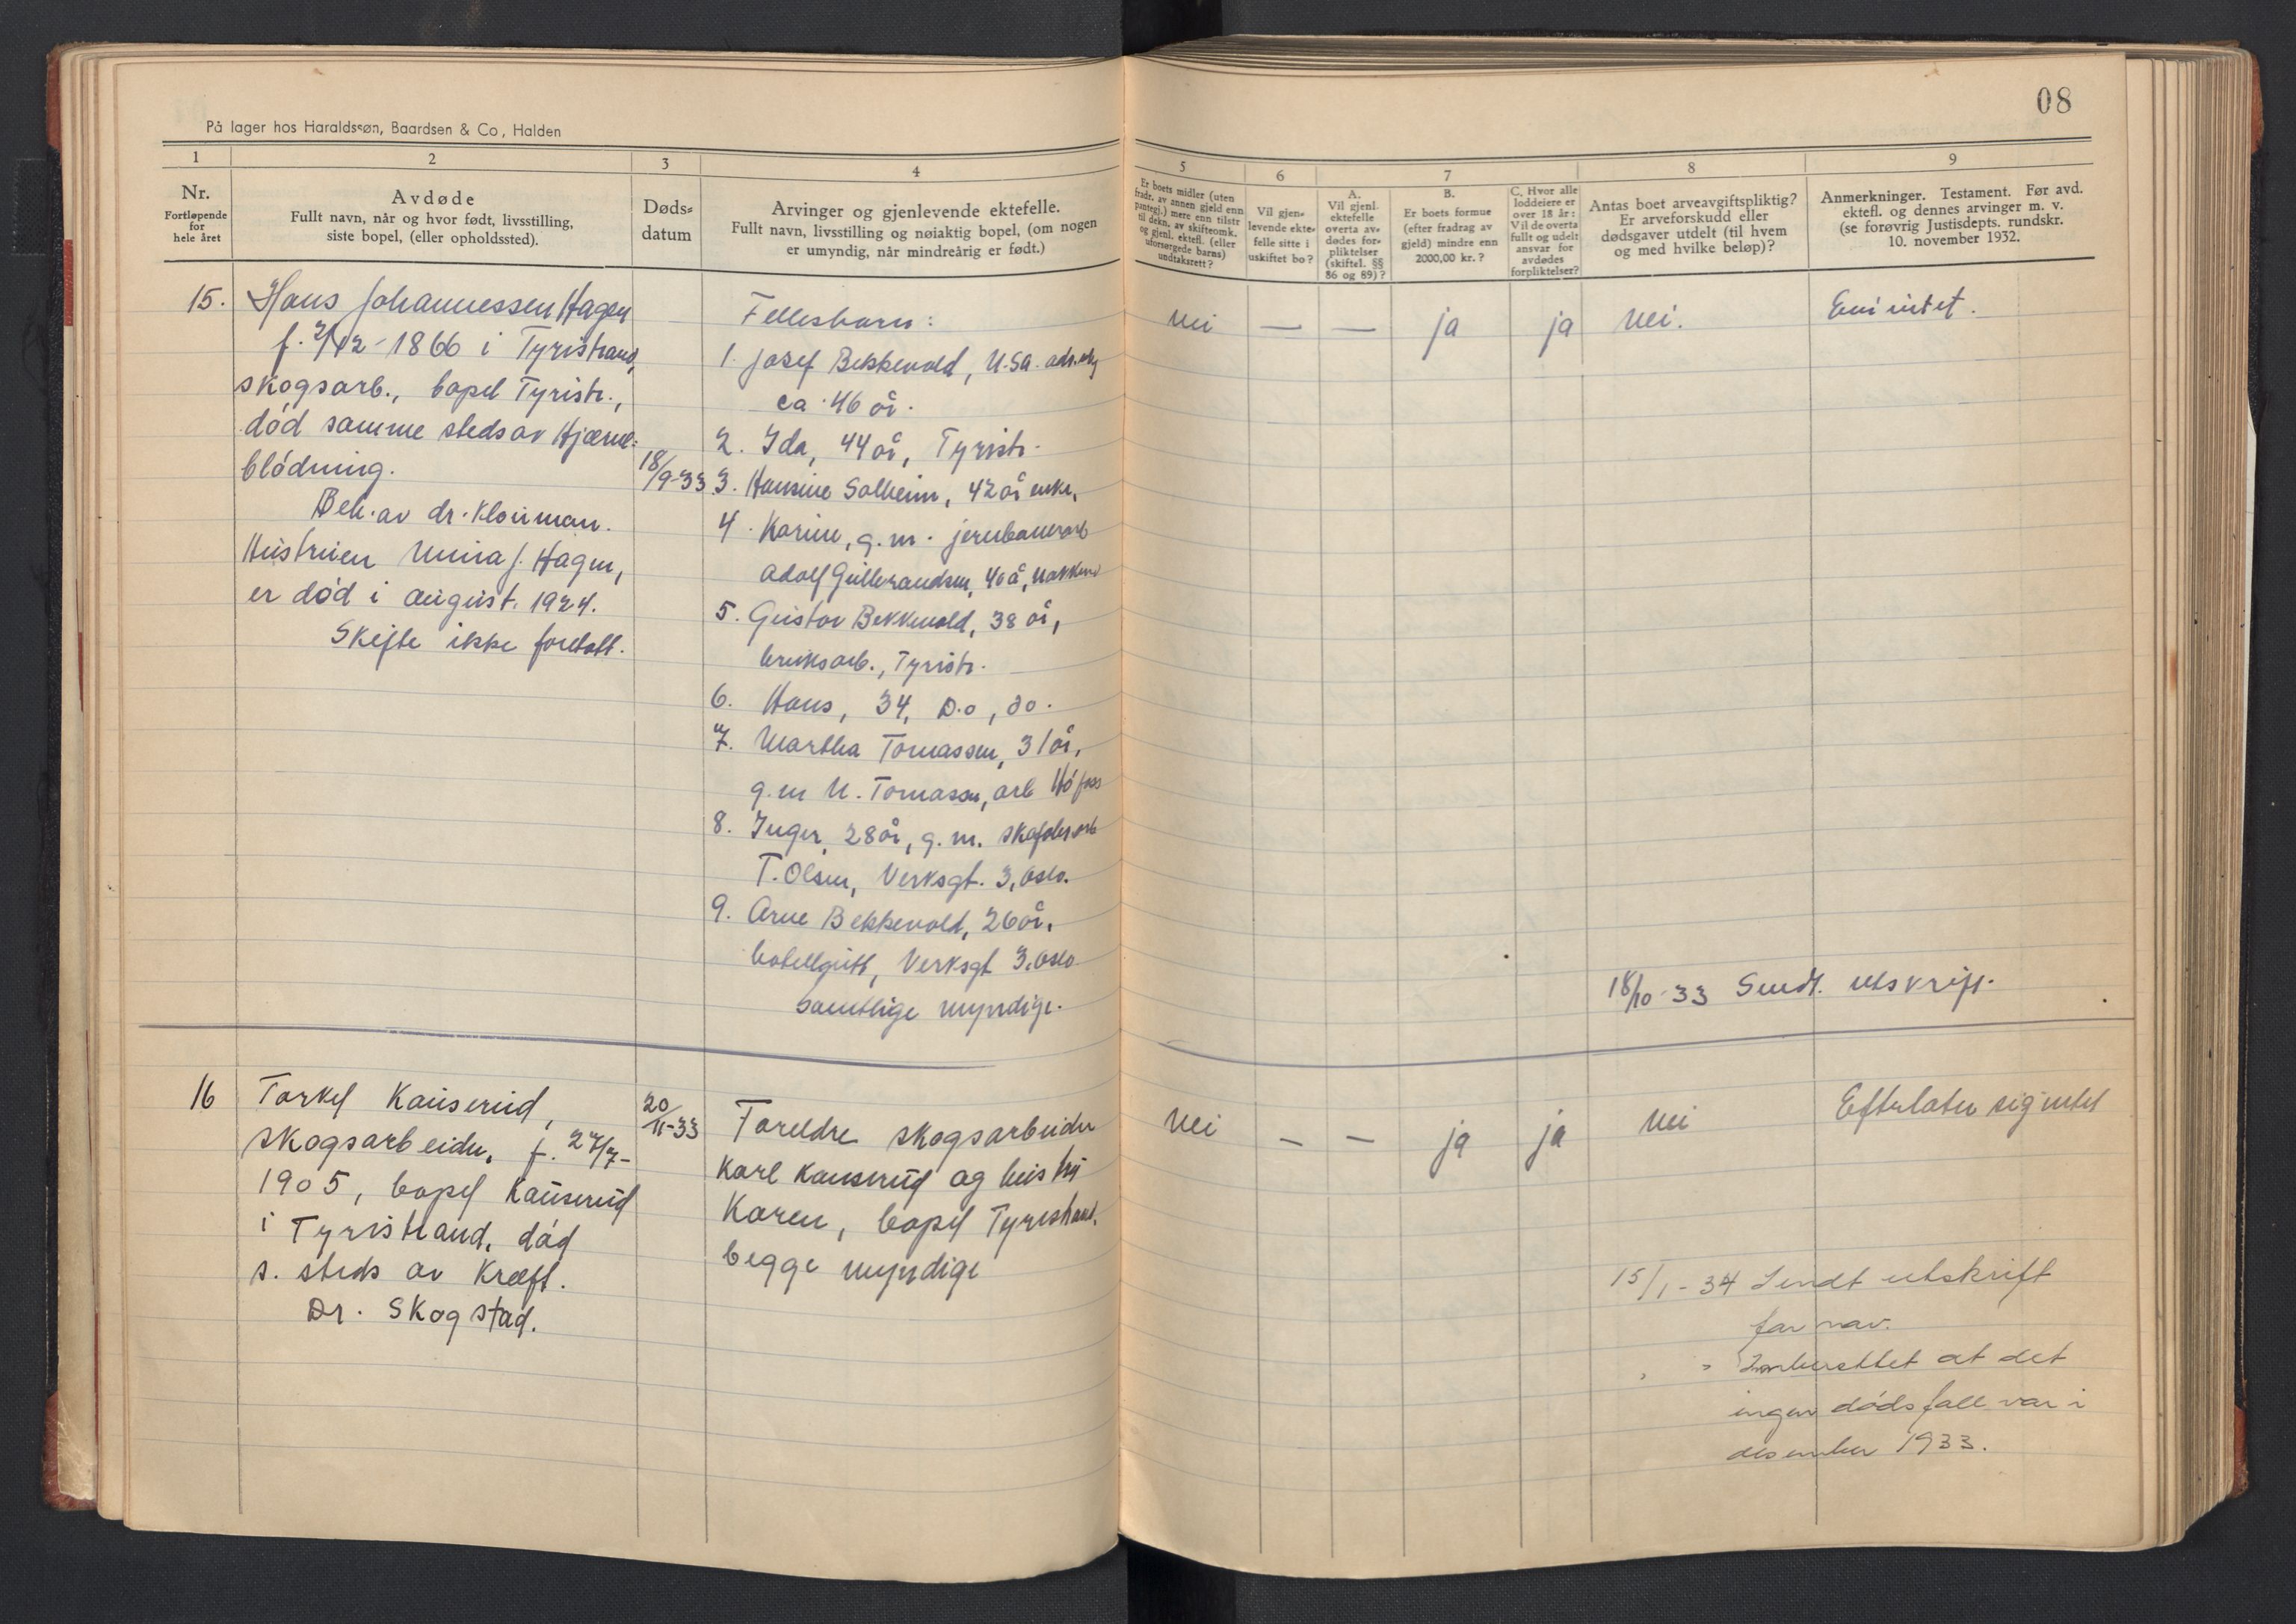 På lager hos Haraldssøn, Baardsen & Co, Halden
08
1
2
3
4
5
6
7
8
9
Nr.
Fortløpende
for
hele året
Avdøde
Fullt navn, når og hvor født, livsstilling,
siste bopel, (eller opholdssted).
Døds-
datum
Arvinger og gjenlevende ektefelle.
Fullt navn, livsstilling og nøiaktig bopel, (om nogen
er umyndig, når mindreårig er født.)
Er boets midler (uten
fradr. av annen gjeld enn
pantegj.) mere enn tilstr.
til dekn. av skifteomk.
og gjenl. ektefl. (eller
uforsørgede barns)
undtaksrett?
Vil gjen-
levende ekte-
felle sitte i
uskiftet bo?
A.
Vil gjenl.
ektefelle
overta av-
dødes for-
pliktelser
(skiftel. §§
86 og 89)?
B.
Er boets formue
(efter fradrag av
gjeld) mindre enn
2000,00 kr.?
C. Hvor alle
loddeiere er
over 18 år:
Vil de overta
fullt og udelt
ansvar for
avdødes
forpliktelser?
Antas boet arveavgiftspliktig?
Er arveforskudd eller
dødsgaver utdelt (til hvem
og med hvilke beløp)?
Anmerkninger. Testament. Før avd.
ektefl. og dennes arvinger m. v.
(se forøvrig Justisdepts. rundskr.
10. november 1932.
15.
Hans Johannessen Hagen
f. /12-1866 i Tyristrand,
skogsarb., bopel Tyristr.,
død samme steds av Hjærne-
blødning.
Beh. av dr. Klouman.
Hustruen J. Hagen,
er død i august 1924.
Skifte ikke foretatt.
18/9-33
Fellesbarn:
1. Josef Bekkevold, U.S.A.
ca. 46 år.
2. Ida, 44 år, Tyristr.
3. Hansine Solheim, 42 år enke,
4. Karin, g.m. jernbanearb
Adolf Gulbrandsen, 40 å,
5. Gustav Bekkevold, 38 år,
bruksarb., Tyristr.
6. Hans, 34, D.o, do.
7. Martha Tomassen, 31 år,
g.m N. Tomassen, arb Høfoss
8. Inger, 28 år, g.m.
T. Olsen, Verksgt. 3, Oslo.
9. Arne Bekkevold, 26 år,
hotellgutt, Verksgt 3, Oslo
samtlige myndige.
Nei
—
—
ja
ja
Nei.
Eier intet.
18/10-33 Sendt utskrift.
16
Torkel Kauserud,
skogsarbeider, f. 27/7-
1905, bopel Kauserud
i Tyristrand, død
s. steds av Kræft.
Dr. Skogstad.
20/11-33
Foreldre skogsarbeider
Karl Kauserud og hustru
Karen, bopel Tyristrand.
begge myndige
Nei
—
—
ja
ja
Nei
Efterlater sig intet
15/1-34 Sendt utskrift
for nov.
" " Innberettet at det
ingen dødsfall var i
desember 1933.